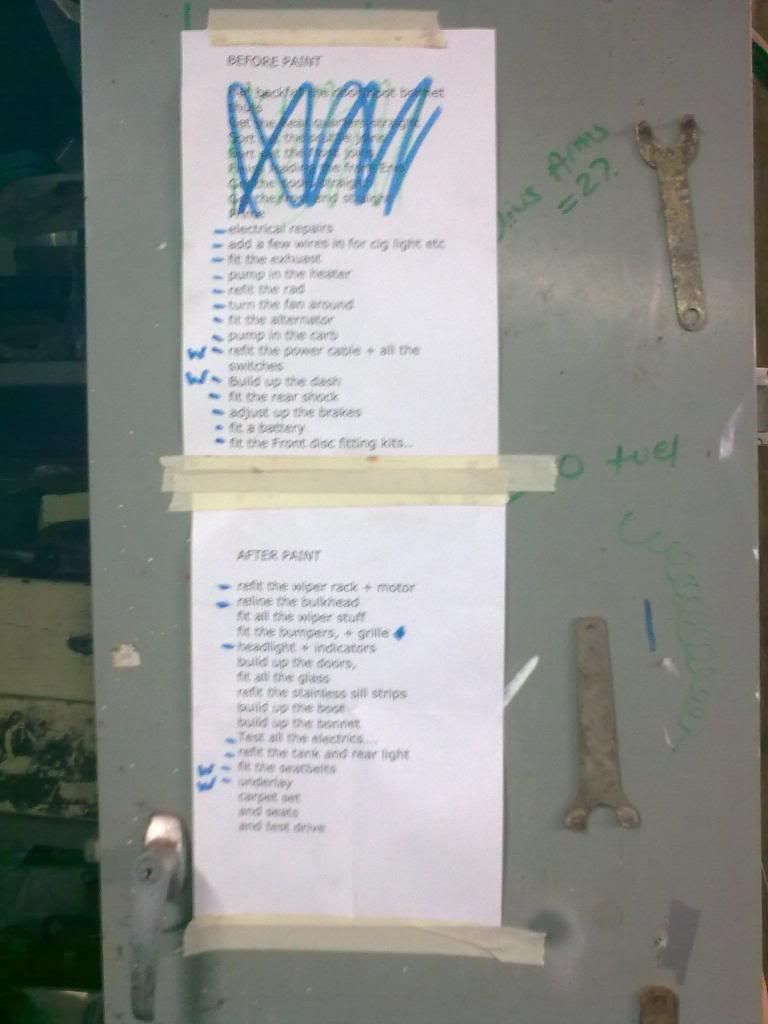 BEFORE PAINT
bonnet
Get the rear quarters straight
Sort out the scuttle joins
Sort out the joins
the front End
Get the doors straight
Get the front end straight
Prime
electrical repairs
add a few wires in for cig light etc
fit the exhuast
pump in the heater
refit the rad
turn the fan around
fit the alternator
pump in the carb
W refit the power cable + all the
switches
W Build up the dash
fit the rear shock
adjust up the brakes
fit a battery
fit the Front disc fitting kits..
AFTER PAINT
refit the wiper rack + motor
reline the bulkhead
fit all the wiper stuff
fit the bumpers, + grille
headlight + indicators
build up the doors,
fit all the glass
refit the stainless sill strips
build up the boot
build up the bonnet
Test all the electrics....
refit the tank and rear light
W fit the seatbelts
W underlay
carpet set
and seats
and test drive
Arms
=27.
fuel